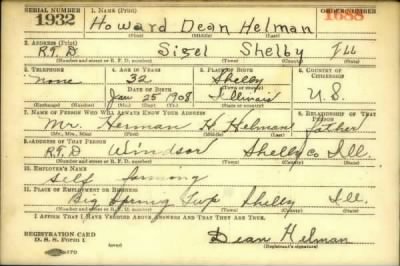 SERIAL NUMBER 1. NAME (Print) ORDER NUMBER
1932 Howard Dean Helman 1688
(First) (Middle) (Last)
2. ADDRESS (Print)
R.F.D Sigel Shelby Ill
(Number and street or R. F. D. number) (Town) (County) (State)
3. TELEPHONE 4. AGE IN YEARS 5. PLACE OF BIRTH 6. COUNTRY OF CITIZENSHIP
None 32 Shelby
DATE OF BIRTH (Town or county)
Jan 25 1908 Illinois U.S.
(Exchange) (Number) (Mo.) (Day) (Yr.) (State or country)
7. NAME OF PERSON WHO WILL ALWAYS KNOW YOUR ADDRESS 8. RELATIONSHIP OF THAT PERSON
Mr. Herman H Helman father
(Mr., Mrs., Miss) (First) (Middle) (Last)
9. ADDRESS OF THAT PERSON
R.F.D Windsor Shelby Co Ill.
(Number and street or R. F. D. number) (Town) (County) (State)
10. EMPLOYER'S NAME
Self farming
11. PLACE OF EMPLOYMENT OR BUSINESS
Big Spring Twp Shelby Ill.
(Number and street or R. F. D. number) (Town) (County) (State)
I AFFIRM THAT I HAVE VERIFIED ABOVE ANSWERS AND THAT THEY ARE TRUE.
REGISTRATION CARD
D. S. S. Form 1 Dean Helman
(Registrant's signature)